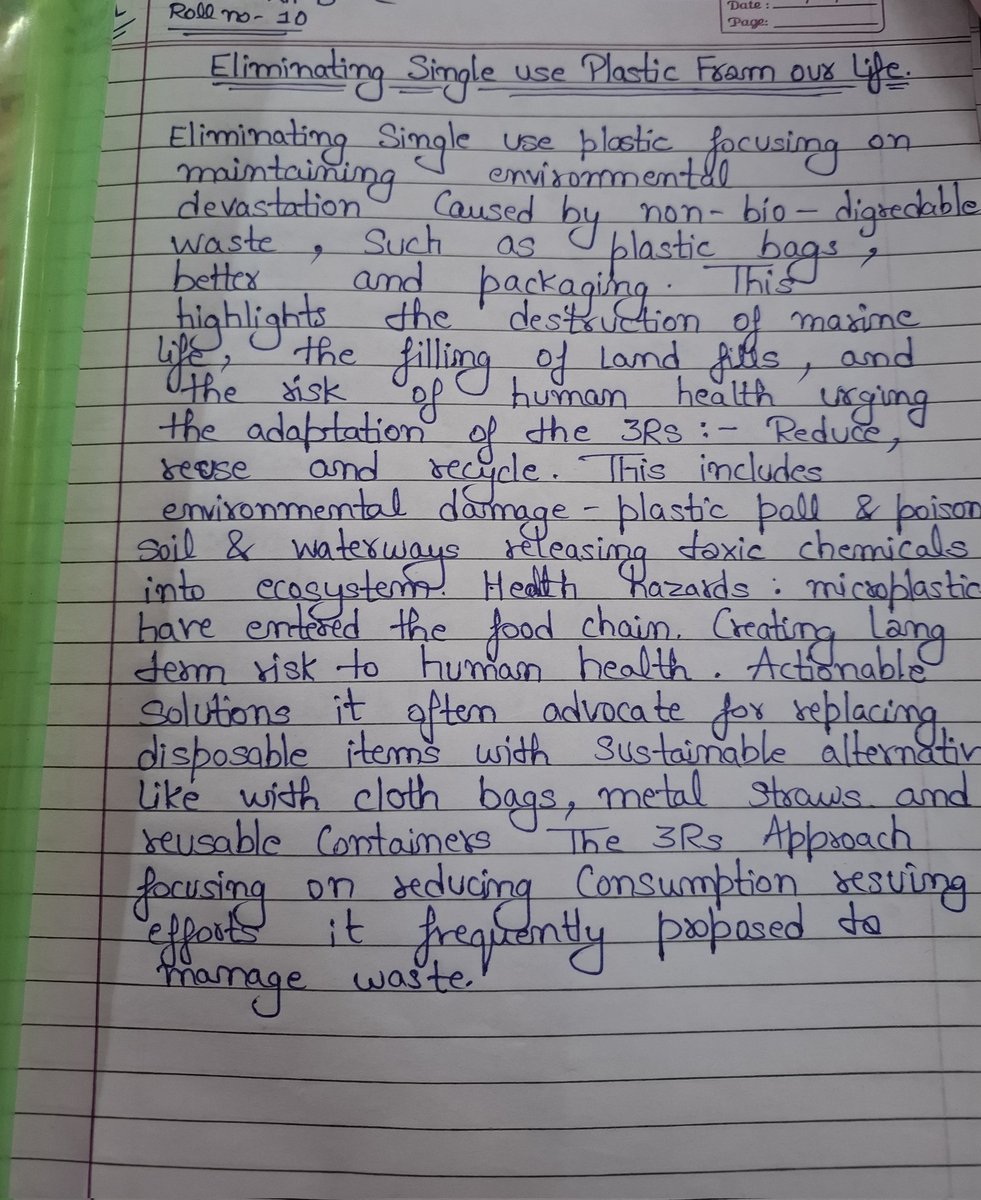 Roll no- 10
Date :
Page:
Eliminating Single use Plastic From our Life.
Eliminating Single use plastic focusing on
maintaining environmental
devastation Caused by non-bio-digredable
waste, Such as plastic bags,
better and packaging. This
highlights the destruction of marine
life, the filling of Land fills, and
the risk of human health urging
the adaptation of the 3Rs :- Reduce,
reuse and recycle. This includes
environmental damage - plastic pall & poison
soil & waterways releasing toxic chemicals
into ecosystem. Health hazards : microplastic
have entered the food chain. Creating Lang
term risk to human health. Actionable
Solutions it often advocate for replacing
disposable items with sustainable alternativ
like with cloth bags, metal straws and
reusable Containers The 3Rs Approach
focusing on reducing Consumption resuing
efforts it frequently proposed to
manage waste.